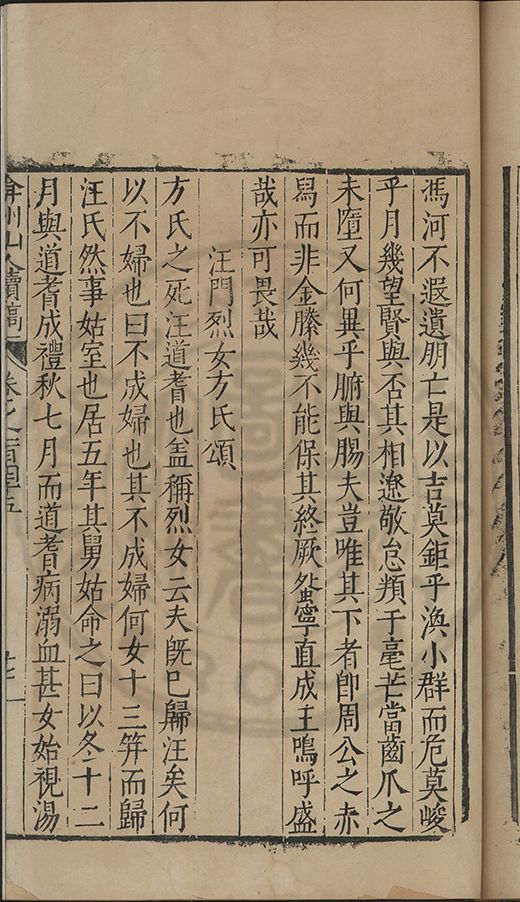 馮河不遐遺朋亡是以吉莫鉅乎渙小群而危莫峻
乎月幾望賢與否其相遼敬怠類于毫芒當齒爪之
未墮又何異乎腑與腸夫豈唯其下者卽周公之赤
舄而非金縢幾不能保其終厥蚩寧直成王嗚呼盛
哉亦可畏哉
汪門烈女方氏頌
方氏之死汪道耆也盖稱烈女云夫既已歸汪矣何
以不婦也曰不成婦也其不成婦何女十三筓而歸
汪氏然事姑室也居五年其舅姑命之曰以冬十二
月與道耆成禮秋七月而道耆病溺血甚女始視湯
弇州山人續稿 卷之一百四十五